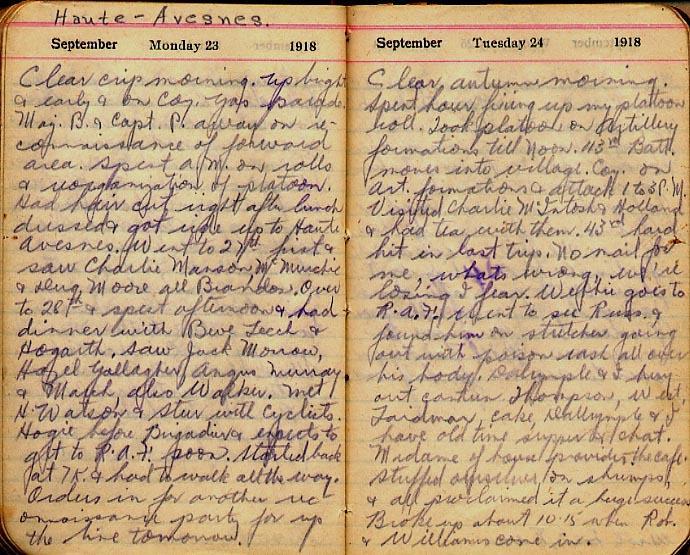 Haute-Avesnes.
September Monday 23 1918
Clear crisp morning. Up bright
& early & on Coy. Gas parade.
Maj. B. & Capt. P. away on re-
connaissance of forward
area. Spent A.M. on rolls
& reorganization of platoon.
Had hair cut right after lunch
dressed & got ride up to Haute
Avesnes. Went to 27th first &
saw Charlie Manson, McMurchie
& Doug Moore all Brandon. Over
to 28th & spent afternoon & had
dinner with Cecil &
Hogarth. Saw Jack Morrow,
Gallagher, Angus Murray
& March, also Walker. Met
H. Watson & Stew with Cyclists.
Hogie before Brigadier & expects to
get to R.A.F. soon. Started back
at 7K. & had to walk all the way.
Orders in for another rec-
onnaissance party for up
the line tomorrow.
September Tuesday 24 1918
Clear autumn morning.
Spent hour fixing up my platoon
roll. Took platoon on Artillery
formations till Noon. 43rd Batt.
moves into village. Coy. on
art. formations & attack 1 to 3 P.M.
Visited Charlie McIntosh & Holland
& had tea with them. 43rd hard
hit in last trip. No mail for
me, whats wrong, we're
losing I fear. goes to
R.A.F. went to see Russ. &
found him on stretcher going
out with poison rash all over
his body. Dalrymple & I buy
out canteen Thompson, West,
cake, Dalrymple & I
have old time supper & chat.
Madame of house provides the cafe.
Stuffed ourselves on shrimps,
& all proclaimed it a huge success
Broke up about 10.15 when Rob.
& Williams come in.